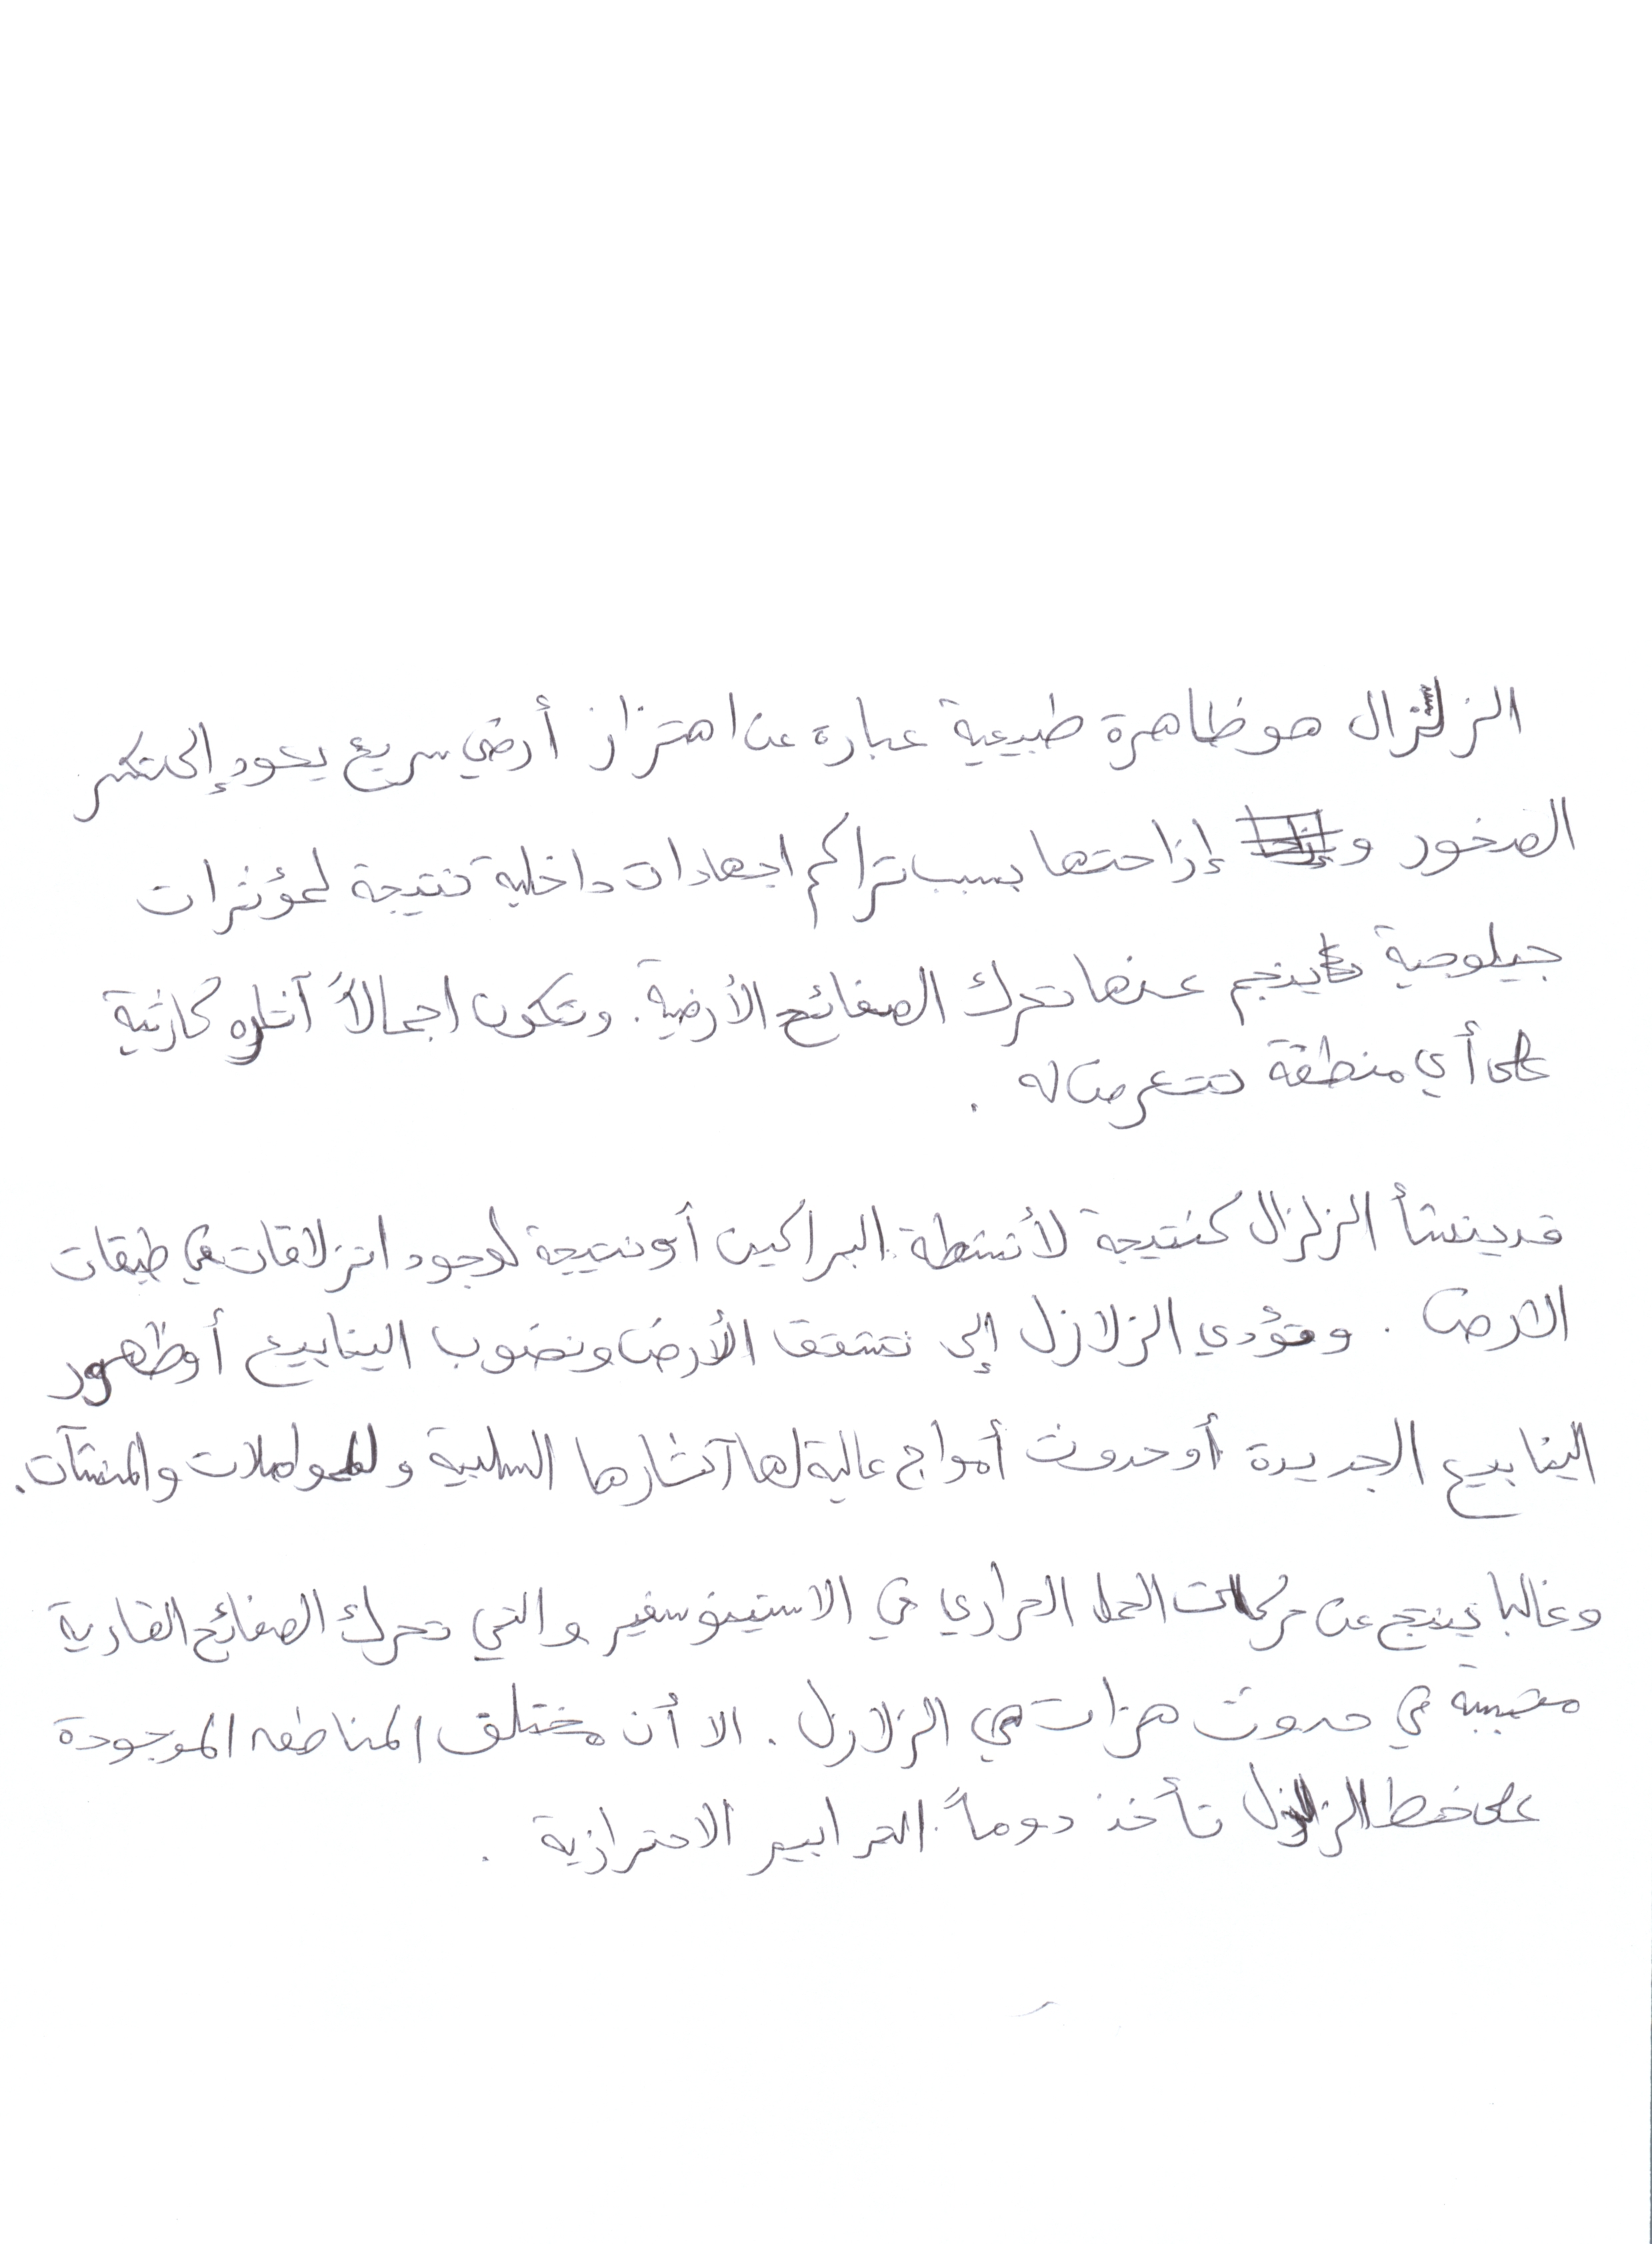 الزلزال هو ظاهرة طبيعية عبارة عن اهتزاز أرضي سريع يعود إلى تكسر
الصخور و إزاحتها بسبب تراكم اجهادات داخلية نتيجة لمؤثرات
جيلوجية ينجم عنها تحرك الصفائح الأرضية. وتكون اجمالاً آثاره كارثية
على أي منطقة تتعرض له .
قد ينشأ الزلزال كنتيجة لأنشطة البراكين أو نتيجة لوجود انزلاقات في طبقات
الارض . وتؤدي الزلازل إلى تشقق الأرض ونضوب الينابيع أو ظهور
الينابيع الجديدة أو حدوث أمواج عالية لها آثارها السلبية و للمواصلات والمنشآت.
وغالبا ينتج عن حركات الحمل الحراري في الاستينوسفير والتي تحرك الصفائح القارية
متسببة في حدوث هزات هي الزلازل . الا أن مختلف المناطق الموجودة
على خط الزلازل تأخذ دوماً التدابير الاحترازية .